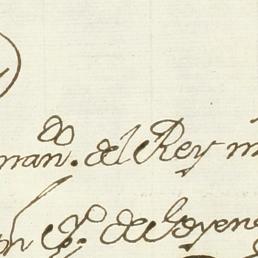 man.do del Rey n
n Y. de Goyene